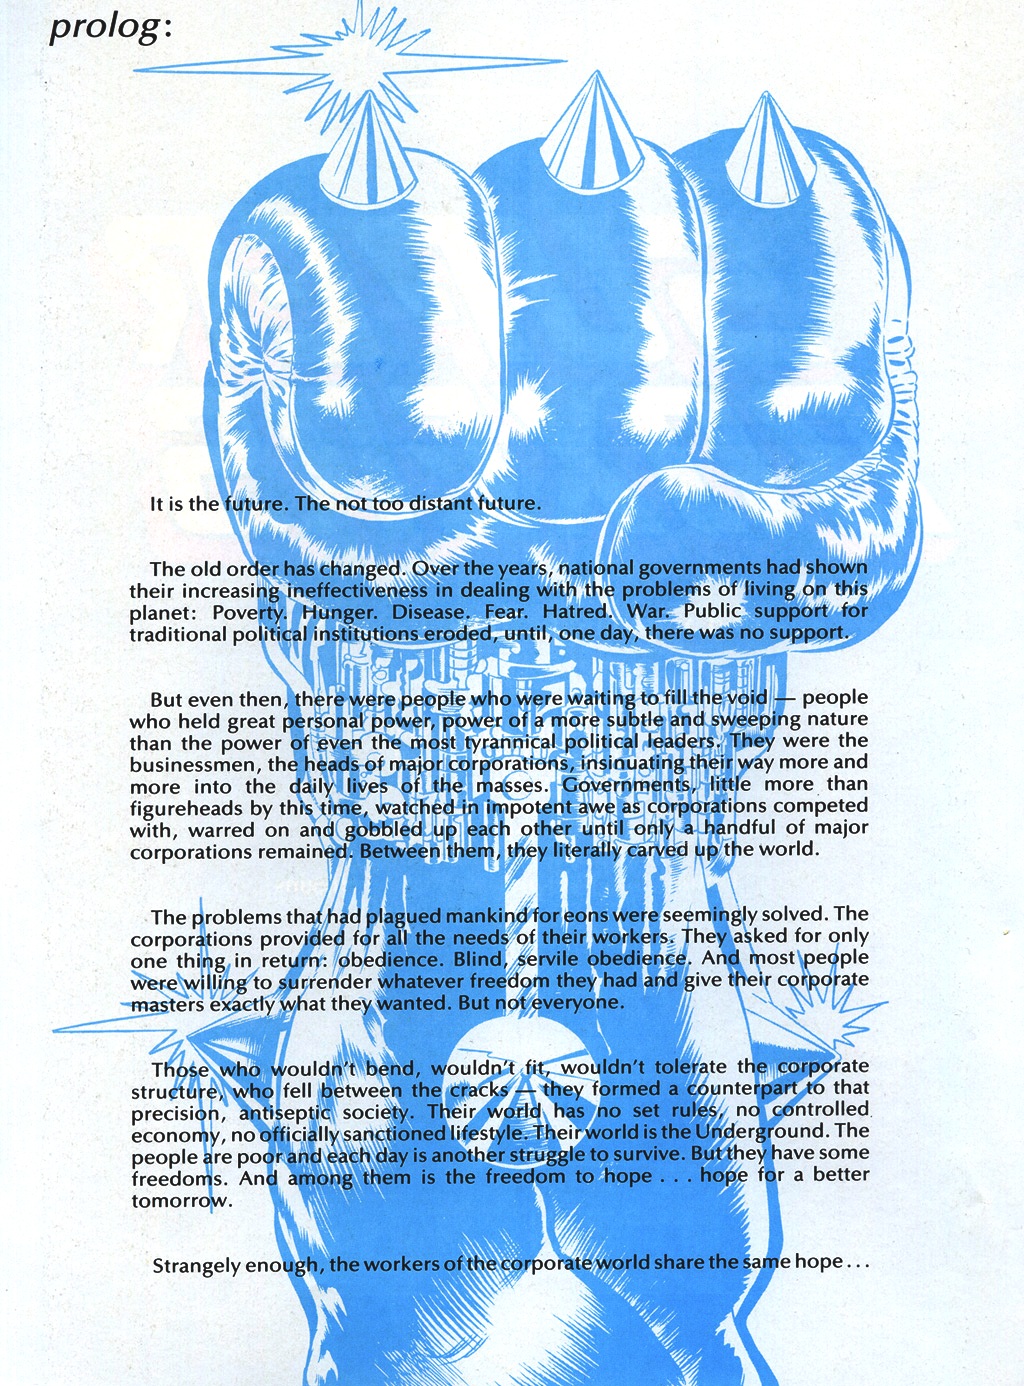 prolog:
It is the future. The not too distant future.
The old order has changed. Over the years, national governments had shown
their increasing ineffectiveness in dealing with the problems of living on this
planet: Poverty. Hunger. Disease. Fear. Hatred. War. Public support for
traditional political institutions eroded, until, one day, there was no support.
But even then, there were people who were waiting to fill the void — people
who held great personal power, power of a more subtle and sweeping nature
than the power of even the most tyrannical political leaders. They were the
businessmen, the heads of major corporations, insinuating their way more and
more into the daily lives of the masses. Governments, little more than
figureheads by this time, watched in impotent awe as corporations competed
with, warred on and gobbled up each other until only a handful of major
corporations remained. Between them, they literally carved up the world.
The problems that had plagued mankind for eons were seemingly solved. The
corporations provided for all the needs of their workers. They asked for only
one thing in return: obedience. Blind, servile obedience. And most people
were willing to surrender whatever freedom they had and give their corporate
masters exactly what they wanted. But not everyone.
Those who wouldn't bend, wouldn't fit, wouldn't tolerate the corporate
structure, who fell between the cracks — they formed a counterpart to that
precision, antiseptic society. Their world has no set rules, no controlled
economy, no officially sanctioned lifestyle. Their world is the Underground. The
people are poor and each day is another struggle to survive. But they have some
freedoms. And among them is the freedom to hope . . . hope for a better
tomorrow.
Strangely enough, the workers of the corporate world share the same hope . . .